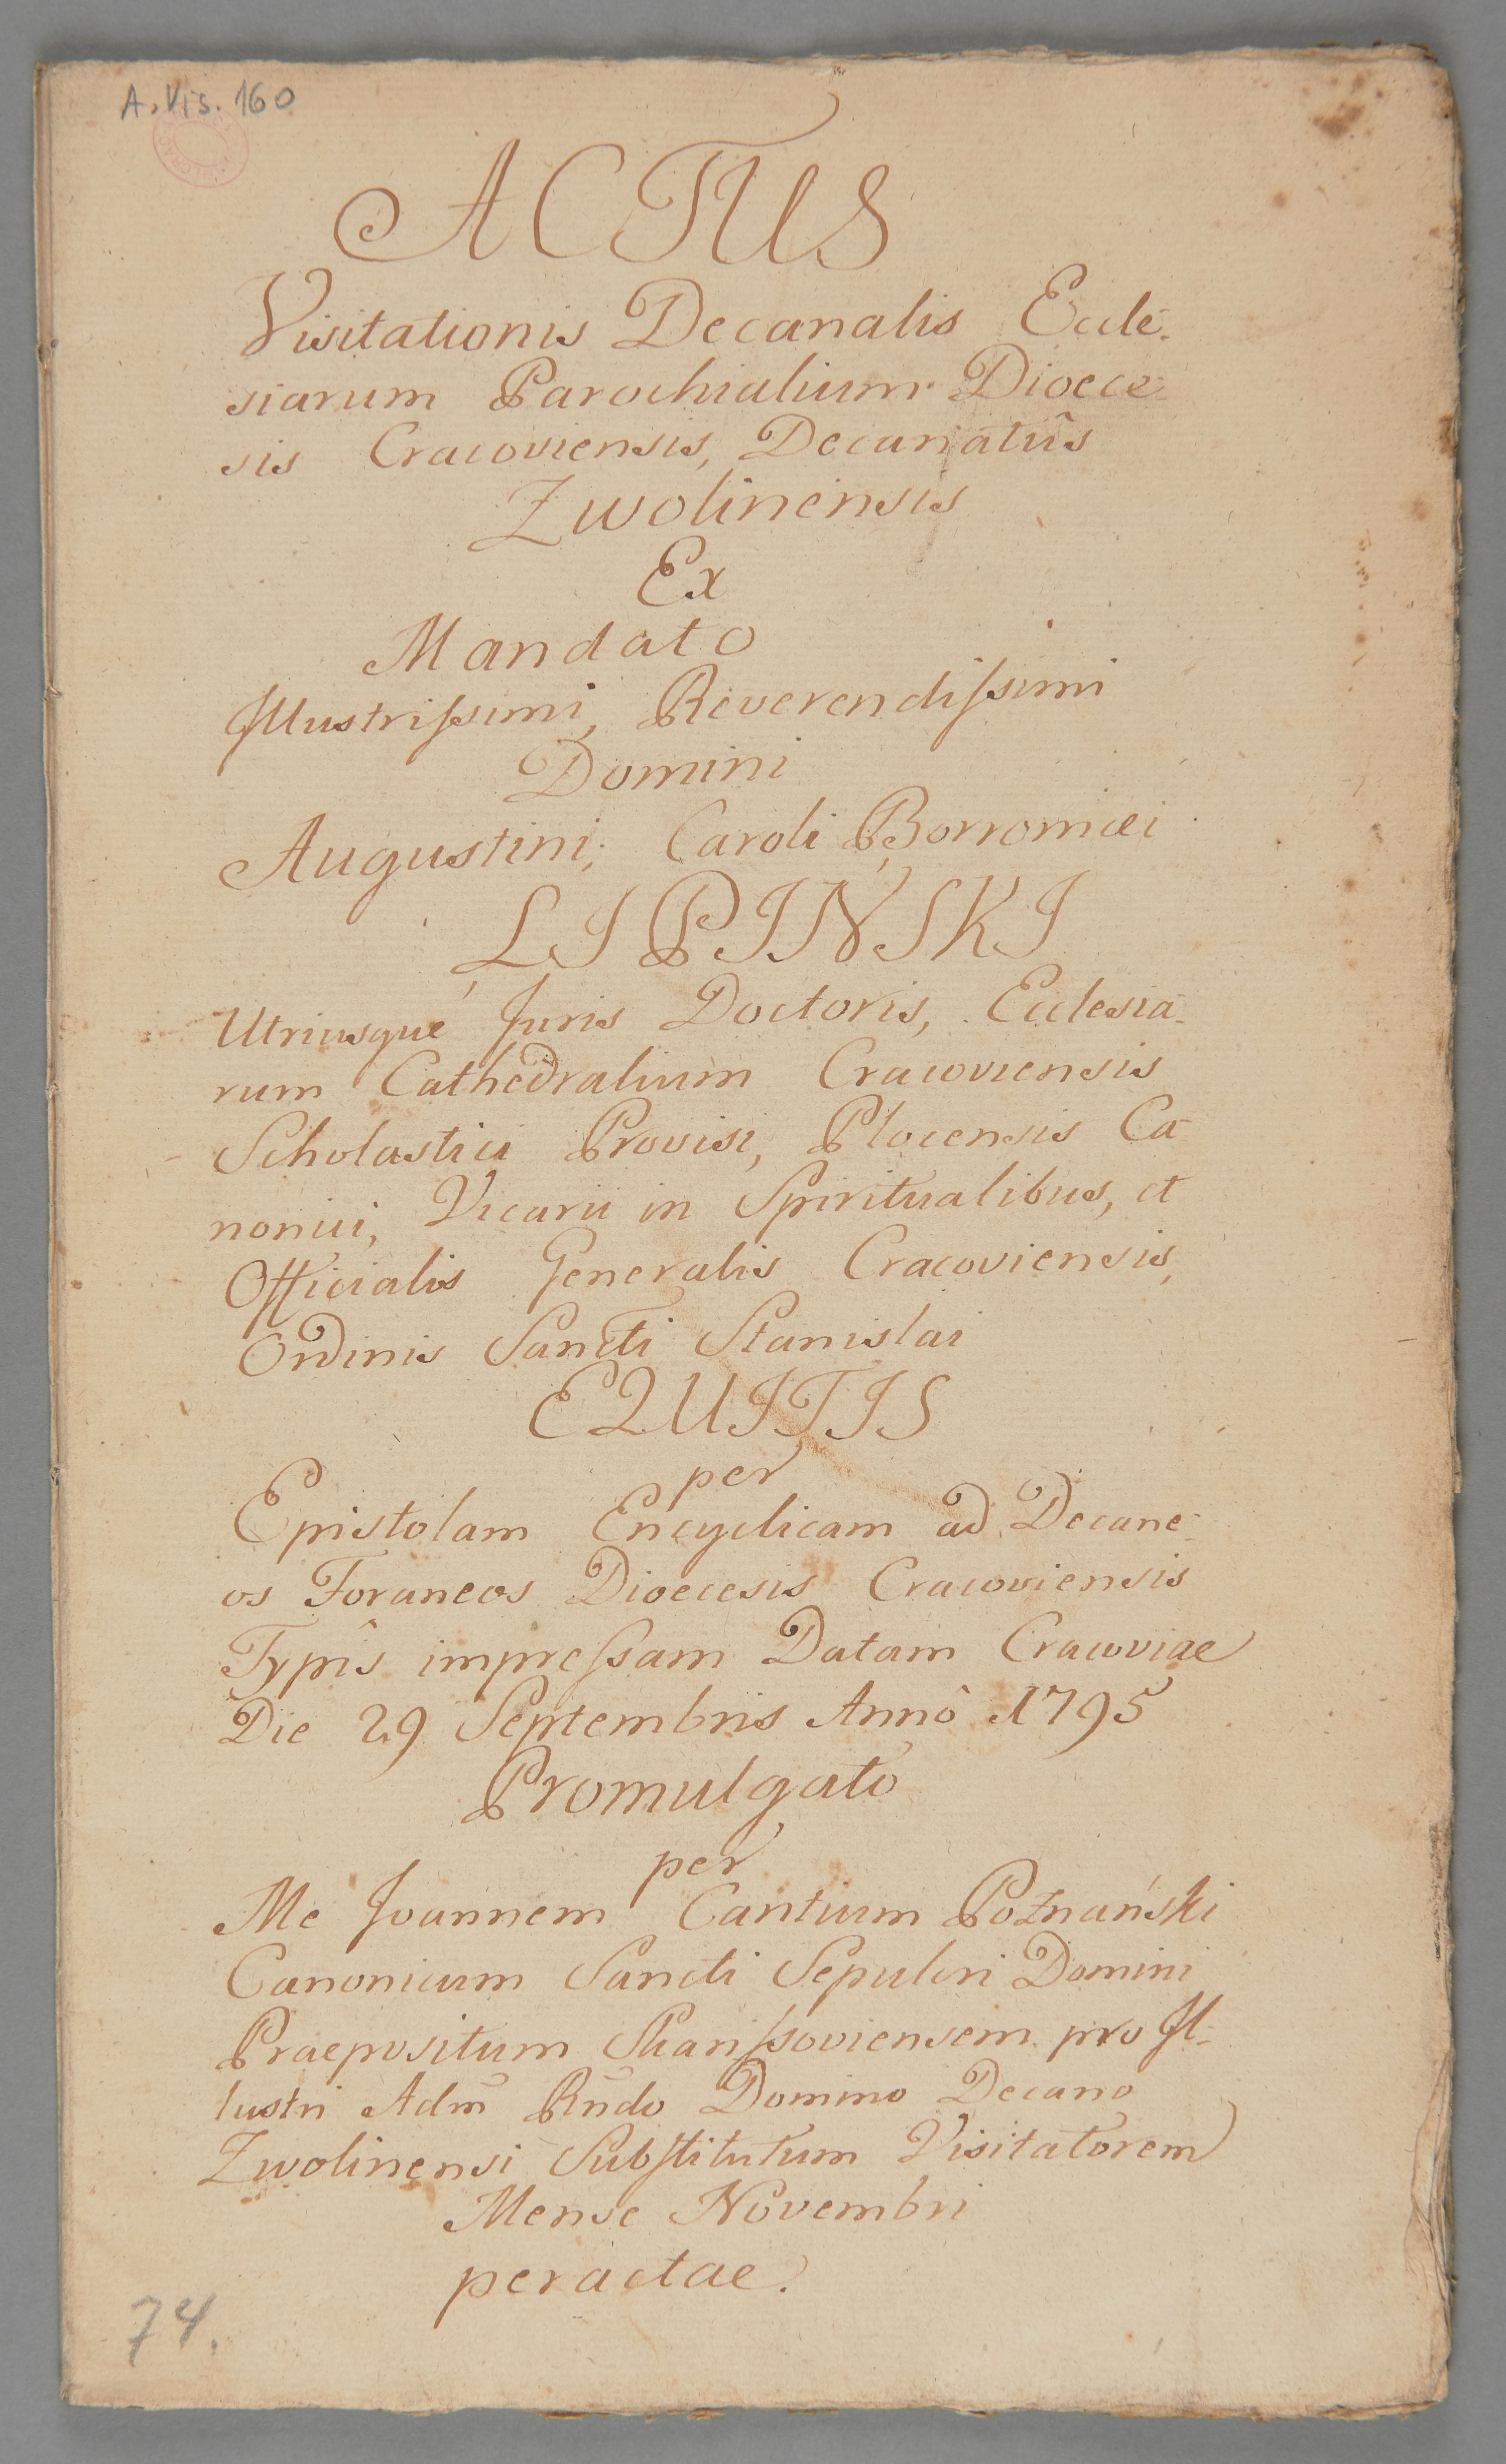 A. Vis. 160
ACTUS
Visitationis Decanalis Eccle-
siarum Parochialium Dioece
sis Cracoviensis, Decanatûs
Zwolinensis
Ex
Mandato
Illustrissimi, Reverendissimi
Domini
Augustini, Caroli Borromæi
LIPIŃSKI
Utriusque Juris Doctoris, Ecclesia-
rum Cathedralium Cracoviensis
Scholastici Provisi, Plocensis Ca-
nonici, Vicarii in Spiritualibus, et
Officialis Generalis Cracoviensis,
Ordinis Sancti Stanislai
EQUITIS
per
Epistolam Encyclicam ad Decane-
os Foraneos Dioecesis Cracoviensis
Typis impressam Datam Cracoviae
Die 29 Septembris Annô 1795
Promulgato
per
Me Joannem Cantium Poznański
Canonicum Sancti Sepulcri Domini
Praepositum Skarissoviensem pro Il-
lustri Adm̄ Rn̄do Domino Decano
Zwolinensi Substitutum Visitatorem
Mense Novembri
peractae.
74.